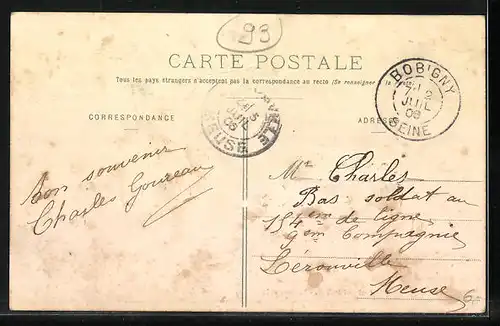 93
CARTE POSTALE
Tous les pays étrangers n'acceptent pas la correspondance au recto (Se renseigner
CORRESPONDANCE
ADRESSE
BOBIGNY
JUIL
06
SEINE
JUIL
06
MEUSE
Bon souvenir
Charles
Mr Charles
Bas soldat au
154eme de ligne
9eme Compagnie
Lérouville
Meuse
6